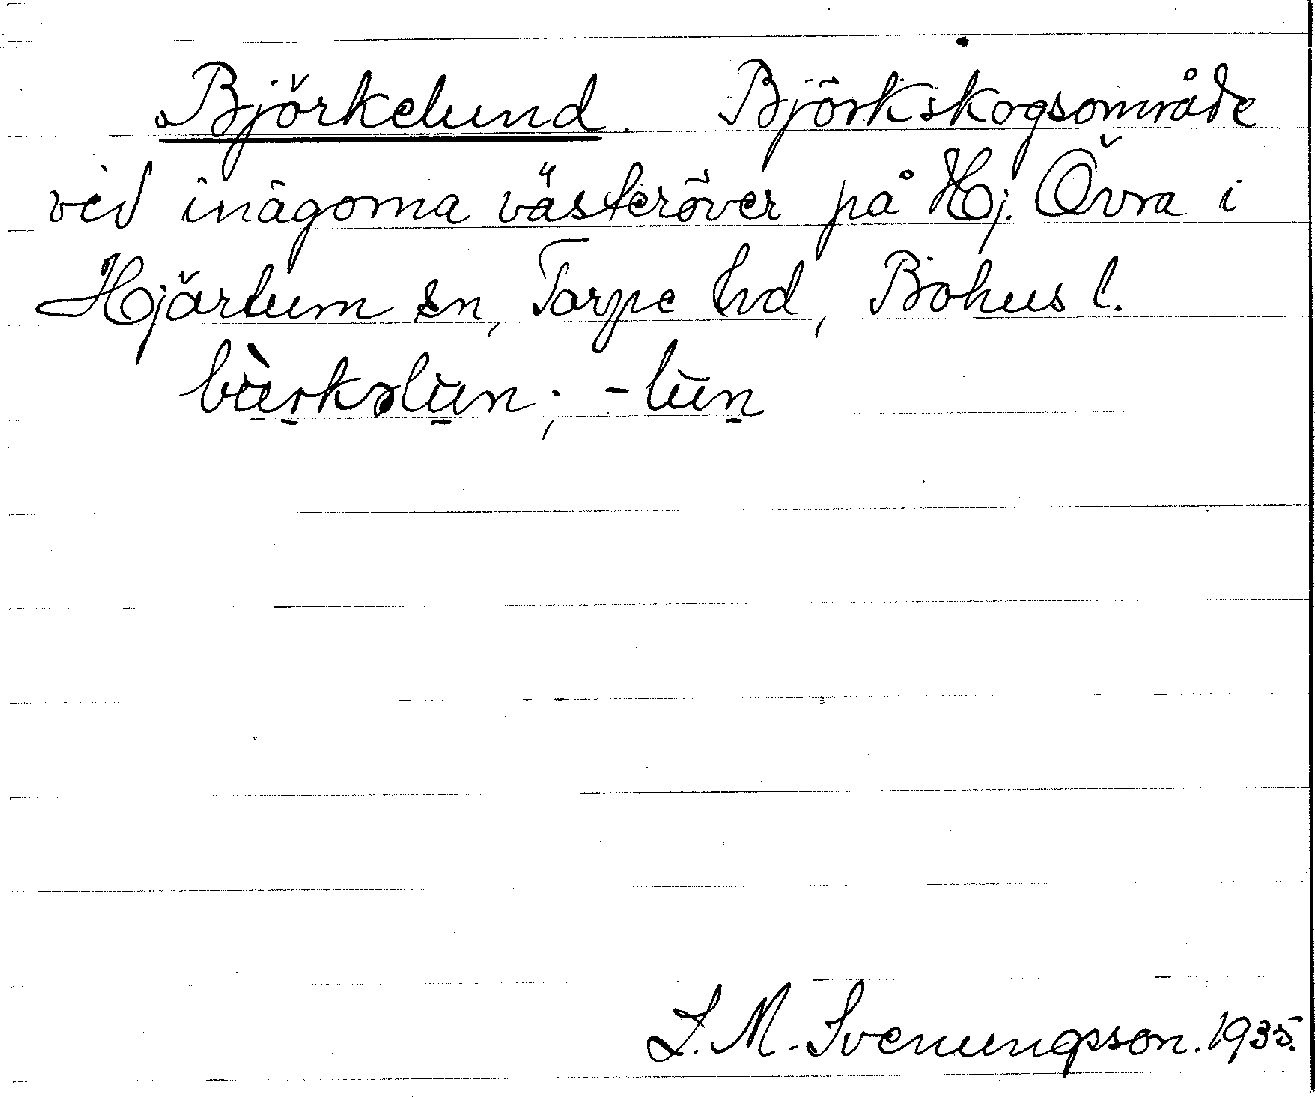 Björkelund. Björkskogsområde
vid inägorna västeröver på Hj. Övra i
Hjärtum sn, Torpe hd, Bohus l.
bùrkəlun; -lun
L. M. Svenungsson. 1935.